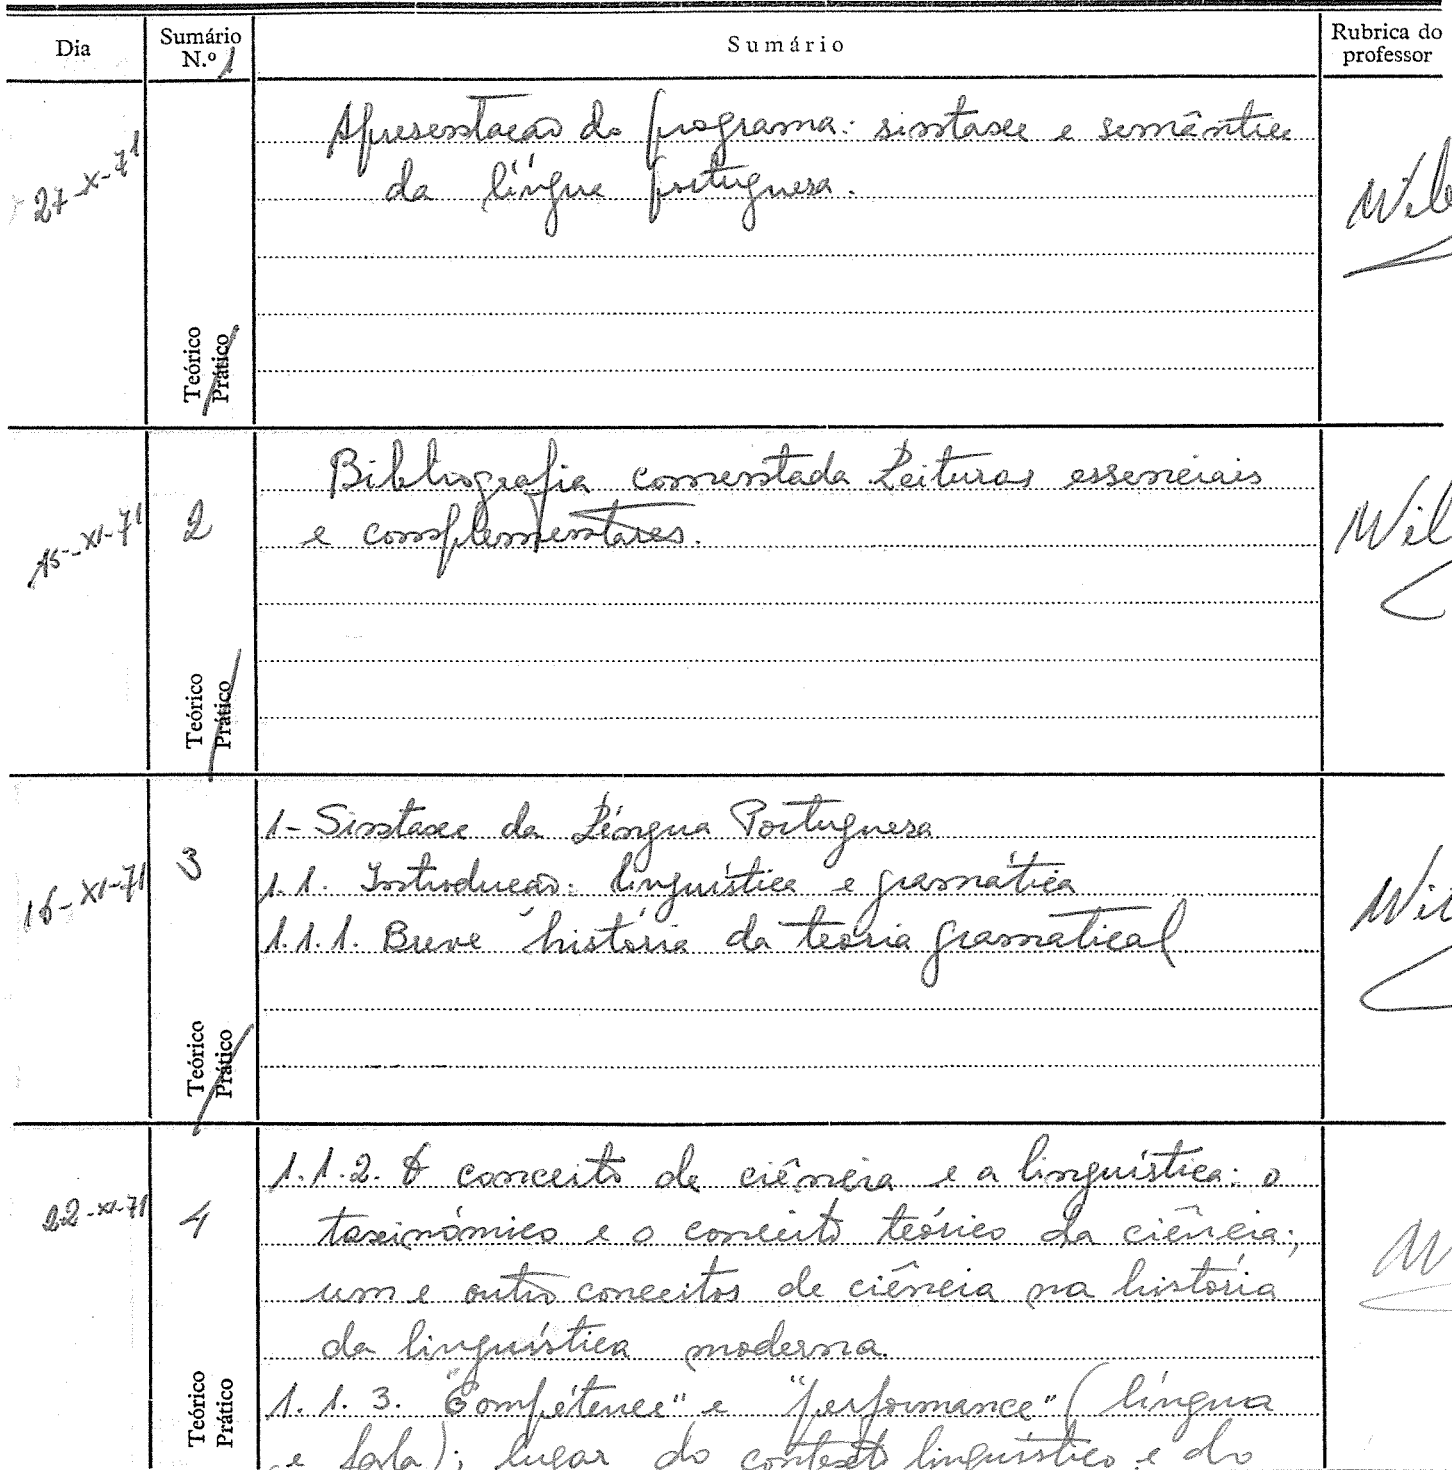 Dia
Sumário
N.º 1
Sumário
Rubrica do
professor
27-X-71
Apresentação do programa: sintaxe e semântica
da língua portuguesa.
Teórico
Prático
15-XI-71
2
Bibliografia comentada Leituras essenciais
e complementares.
Teórico
Prático
16-XI-71
3
1- Sintaxe da Língua Portuguesa
1.1. Introdução: linguística e gramática
1.1.1. Breve história da teoria gramatical
Teórico
Prático
22-XI-71
4
1.1.2. O conceito de ciência e a linguística: o
taxinómico e o conceito teórico da ciência;
um e outro conceitos de ciência na história
da linguística moderna.
1.1.3. "Compétence" e "performance" (língua
e fala); lugar do contexto linguístico e do
Teórico
Prático